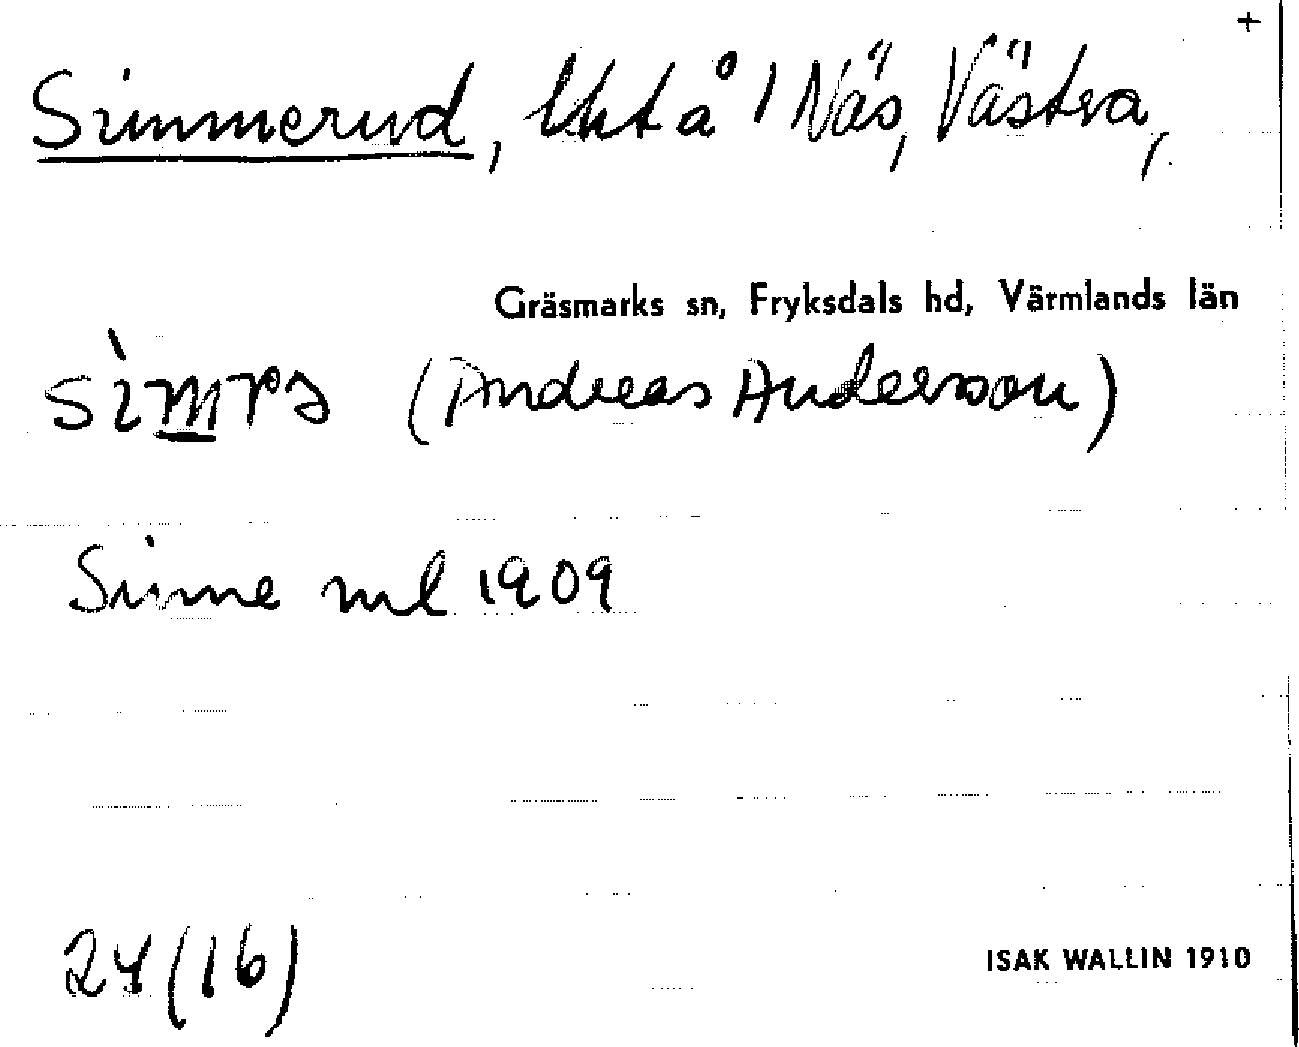 +
Simmerud, lht å 1 Näs, Västra,
Gräsmarks sn, Fryksdals hd, Värmlands län
(Andreas Anderson)
Simme ml 1909
24 (16)
ISAK WALLIN 1910